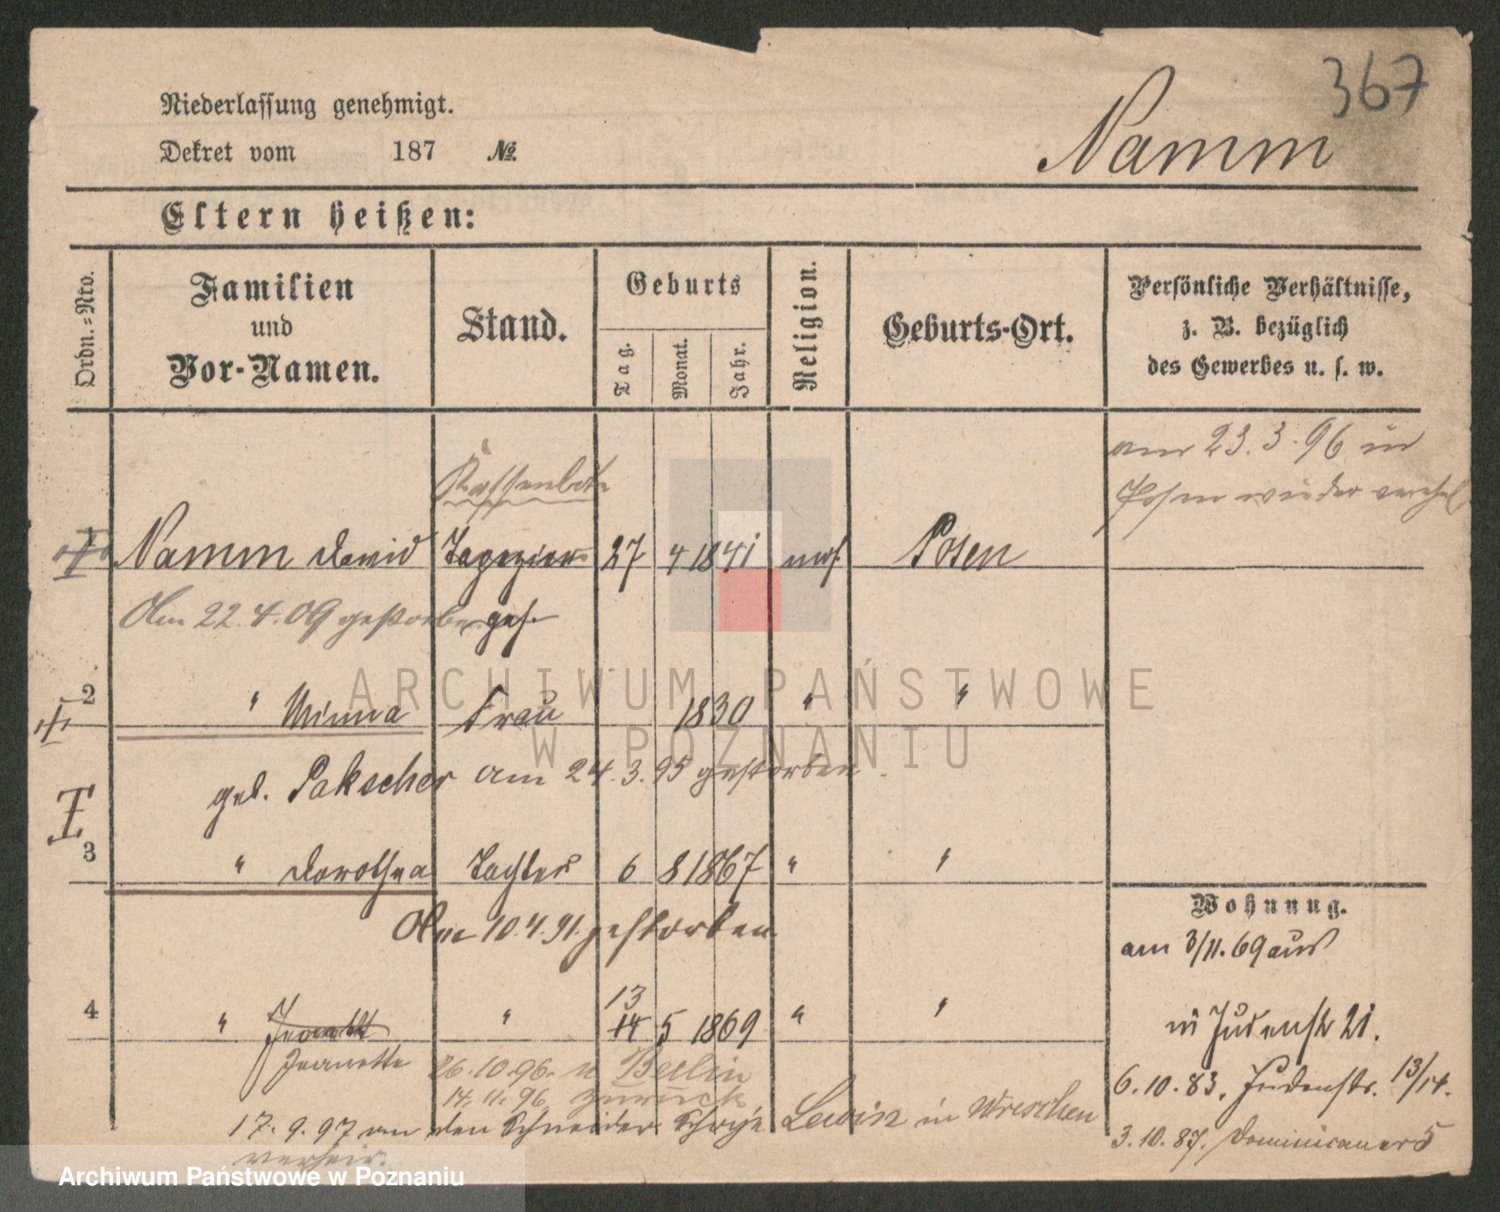 367
Niederlassung genehmigt.
Dekret vom 187 №
Namm
Eltern heißen:
Ordn.=Nro.
Familien
und
Vor-Namen.
Stand.
Geburts
Tag.
Monat.
Jahr.
Religion.
Geburts-Ort.
Persönliche Verhältnisse,
z. B. bezüglich
des Gewerbes u. s. w.
am 23.3.96 in
Posen wieder verehel.
Kassenbote
1 Namm David Tapezier 27 4 1841 mos. Posen
Am 22.4.09 gestorben
ges.
2 " Minna Frau 1830 " "
geb. Pakscher am 24.3.95 gestorben
3 " Dorothea Tochter 6 8 1867 " "
Am 10.4.91. gestorben
13
4 " Jeanette " 14 5 1869 " "
Jeanette 26.10.96. n Berlin
14.11.96. zurück
17.9.97 an den Schneider Lewin in Wreschen
verheir.
Wohnung.
am 3/11.69 aus
in Judenstr 21.
6.10.83. Judenstr. 13/14.
3.10.87. Dominicaner 5
ARCHIWUM PAŃSTWOWE
W POZNANIU
Archiwum Państwowe w Poznaniu